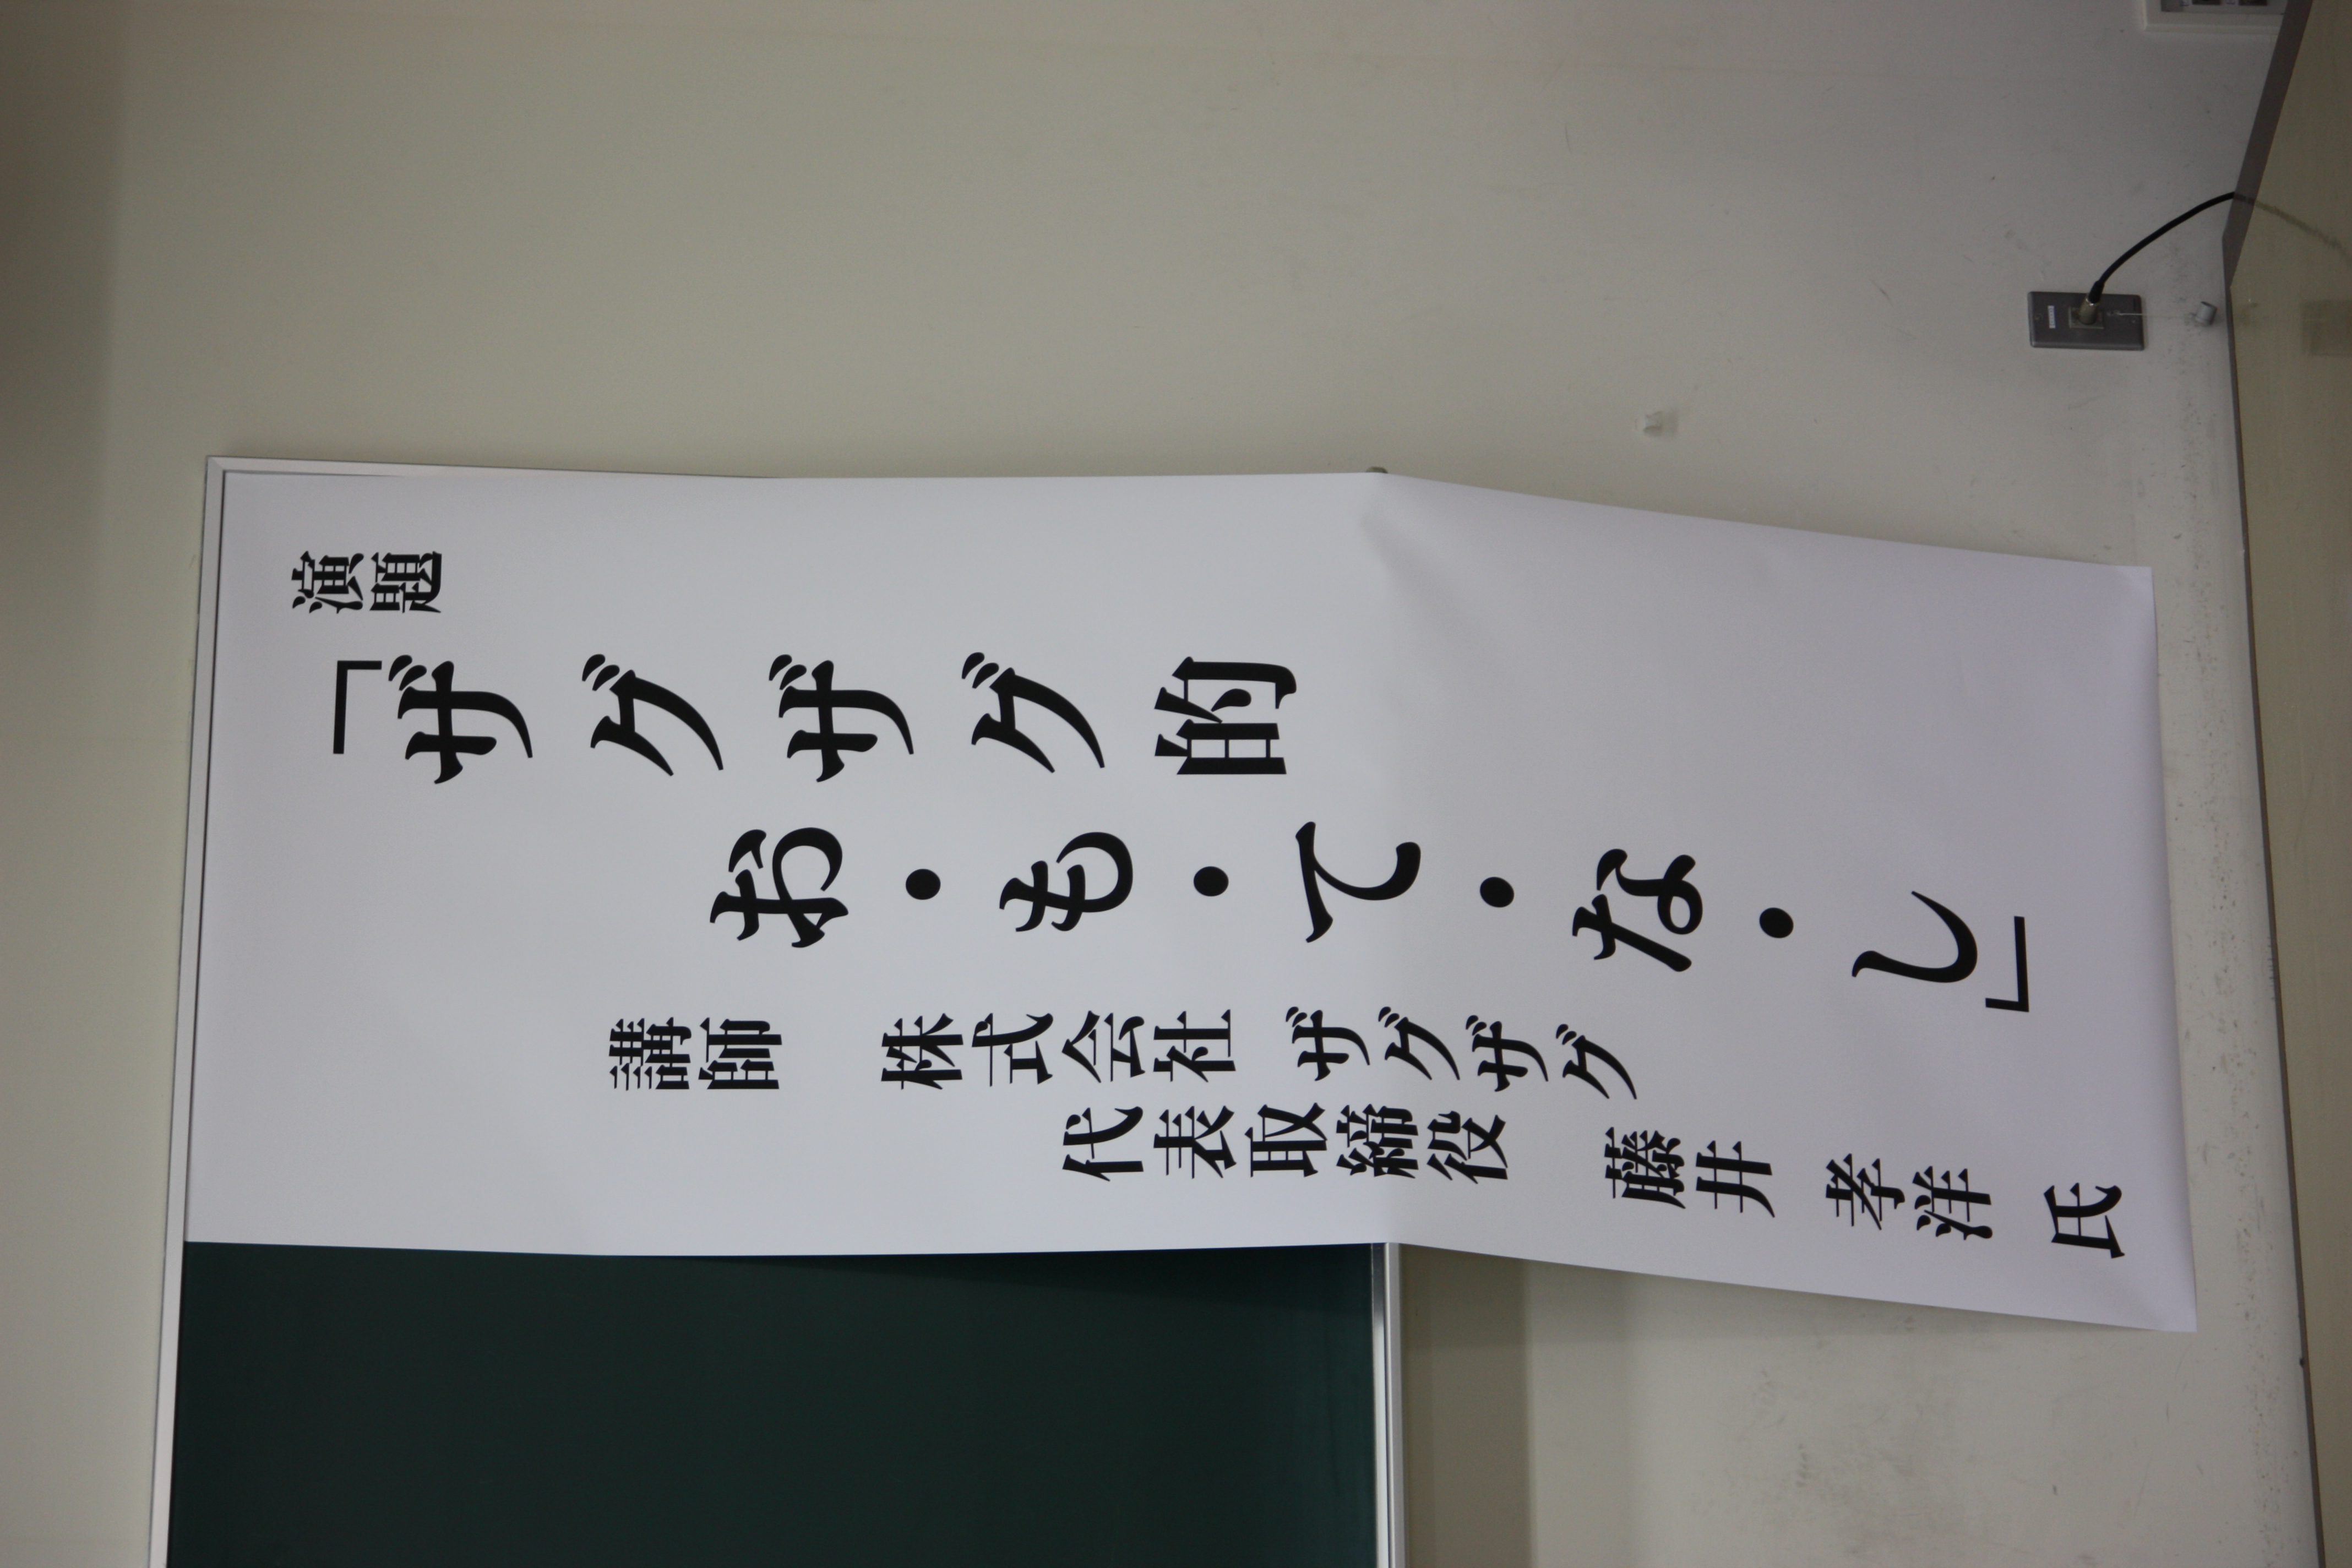 演題
「ザグザグ的
お・も・て・な・し」
講師　株式会社 ザグザグ
代表取締役　藤井　孝洋　氏